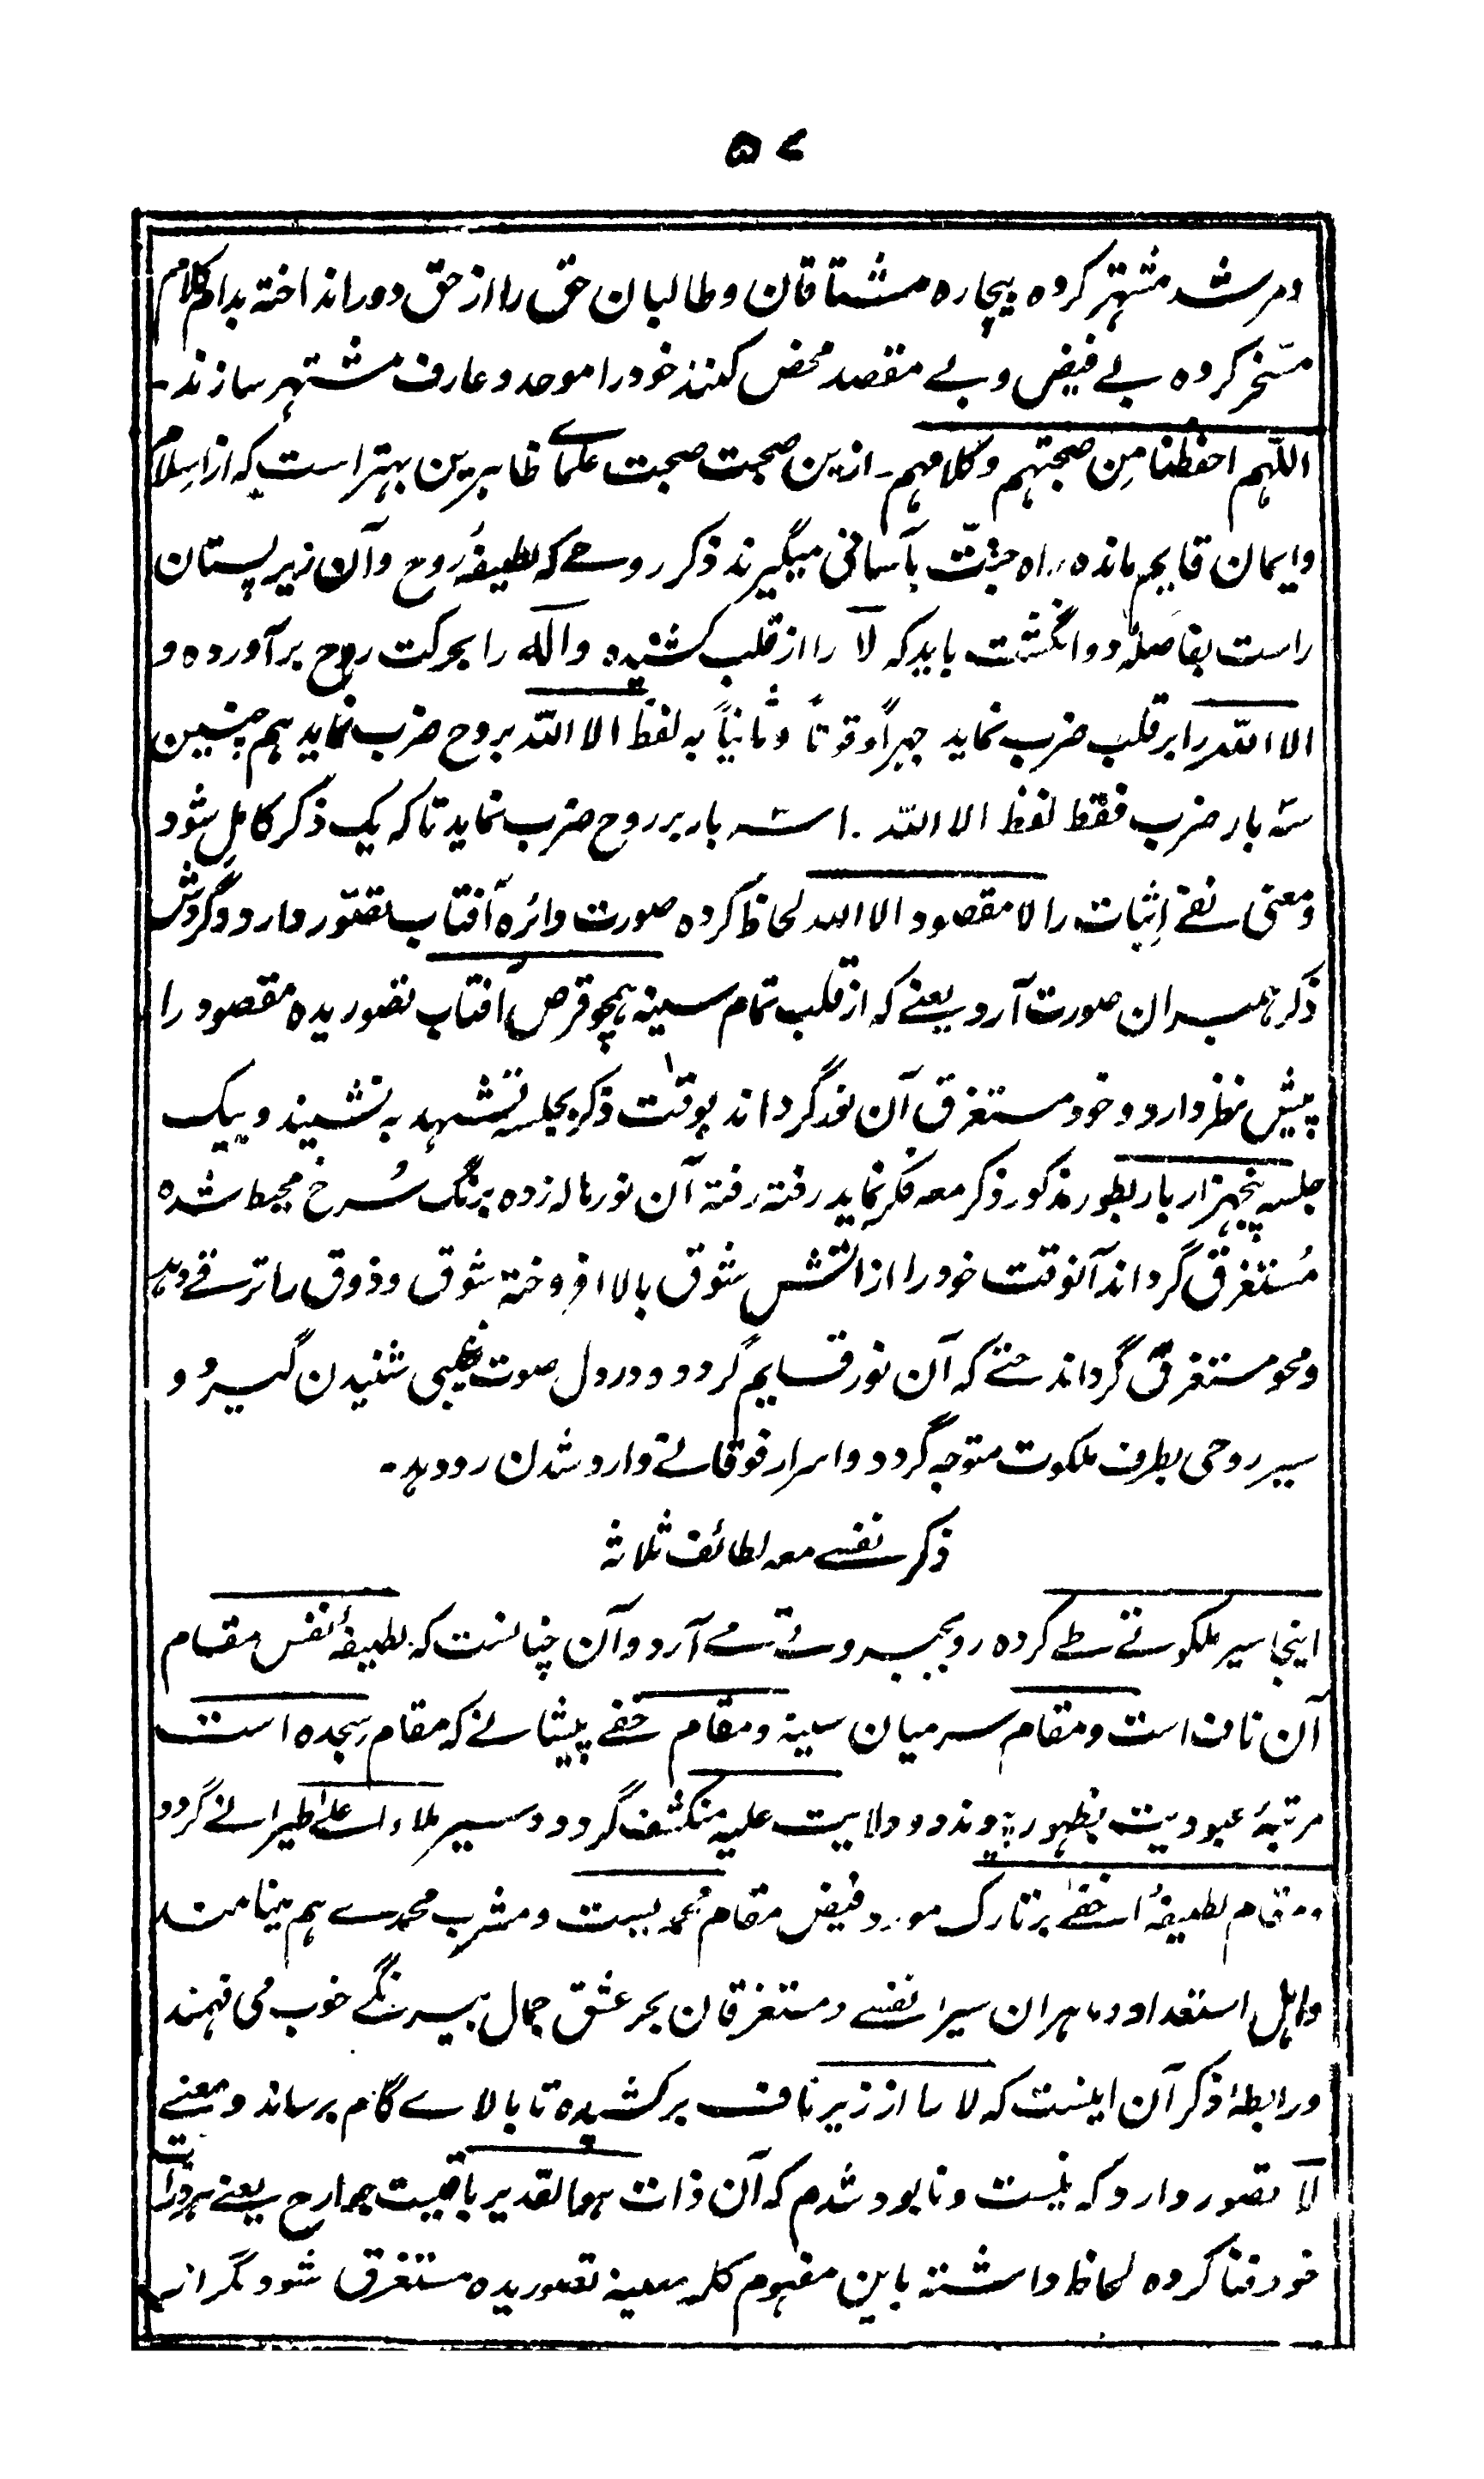 ۵۷
ومرشد مشتہر کردہ بیچارہ مشتاقان وطالبان حق را از حق دور انداختہ بدام کلام
مسخر کردہ بے فیض و بے مقصد محض کنند خود را موحد و عارف مشتہر سازند۔
اللّٰہم احفظنا مِن صحبتہم وکلامہم۔ ازین صحبت صحبت علمائے ظاہرین بہتر است کہ از اسلام
وایمان قایم ماندہ راہ جنّت بآسانی میگیرند ذکر روحے کہ لطیفۂ روح وآن زیر پستان
راست بفاصلہ دو انگشت باید کہ لا را از قلب کشیدہ والٰہ را بحرکت روح برآوردہ و
الا اللہ را بر قلب ضرب نماید جہراً و قوتاً و ثانیاً بہ لفظ الا اللہ بروح ضرب نماید ہم چنین
سہ بار ضرب فقط لفظ الا اللہ را سہ بار بر روح ضرب نماید تا کہ یک ذکر کامل شود
ومعنی نفے اِثبات را لا مقصود الا اللہ لحاظ کردہ صورت دائرہ آفتاب تصّور دارد و گردش
ذکر ہمبران صورت آرد یعنے کہ از قلب تمام سینہ ہمچو قرص آفتاب تصوریدہ مقصود را
پیش نظر دارد و خود مستغرق آن نور گرداند بوقت ذکر بجلسہ تشہد بہ نشیند و بیک
جلسہ پنجہزار بار بطور مذکور ذکر معہ فکر نماید رفتہ رفتہ آن نور ہالہ زدہ برنگ سُرخ محیط شدہ
مُستغرق گرداند آنوقت خود را از آتش شوق بالا افروختہ شوق وذوق را ترقے دہد
ومحو مستغرق گرداند حتے کہ آن نور قایم گردد و در دل صوت غیبی شنیدن گیرد و
سیر روحی بطرف ملکوت متوجہ گردد و اسرار فوقانے وارد شدن رو دہد۔
ذکر نفسے معہ لطائف ثلاثہ
اینجا سیر ملکوتے طے کردہ رو بجبروتے مے آرد و آن چنانست کہ لطیفۂ نفس مقام
آن ناف است و مقام سر میان سینہ و مقام خفے پیشانے کہ مقام سجدہ است
مرتبۂ عبودیت بظہور پیوندد و ولایت علیہ منکشف گردد و سیر ملاء اعلےٰ طیرانے گردد
ومقام لطیفۂ اخفےٰ بر تارک مورد فیض مقام محمدیست و مشرب محمدے ہم مینامند
واہل استعداد و ماہران سیر انفسے و مستغرقان بحر عشق جمال بیرنگے خوب می فہمند
ورابطۂ ذکر آن اینست کہ لا را از زیر ناف برکشیدہ تا بالاے گام برساند و معنے
لا تصور دارد کہ نیست و نابود شدم کہ آن ذات ہوالقدیر باقیست جوارح یعنے ہر ذرات
خود فنا کردہ لحاظ داشتہ باین مفہوم کلمہ تصوریدہ مستغرق شود